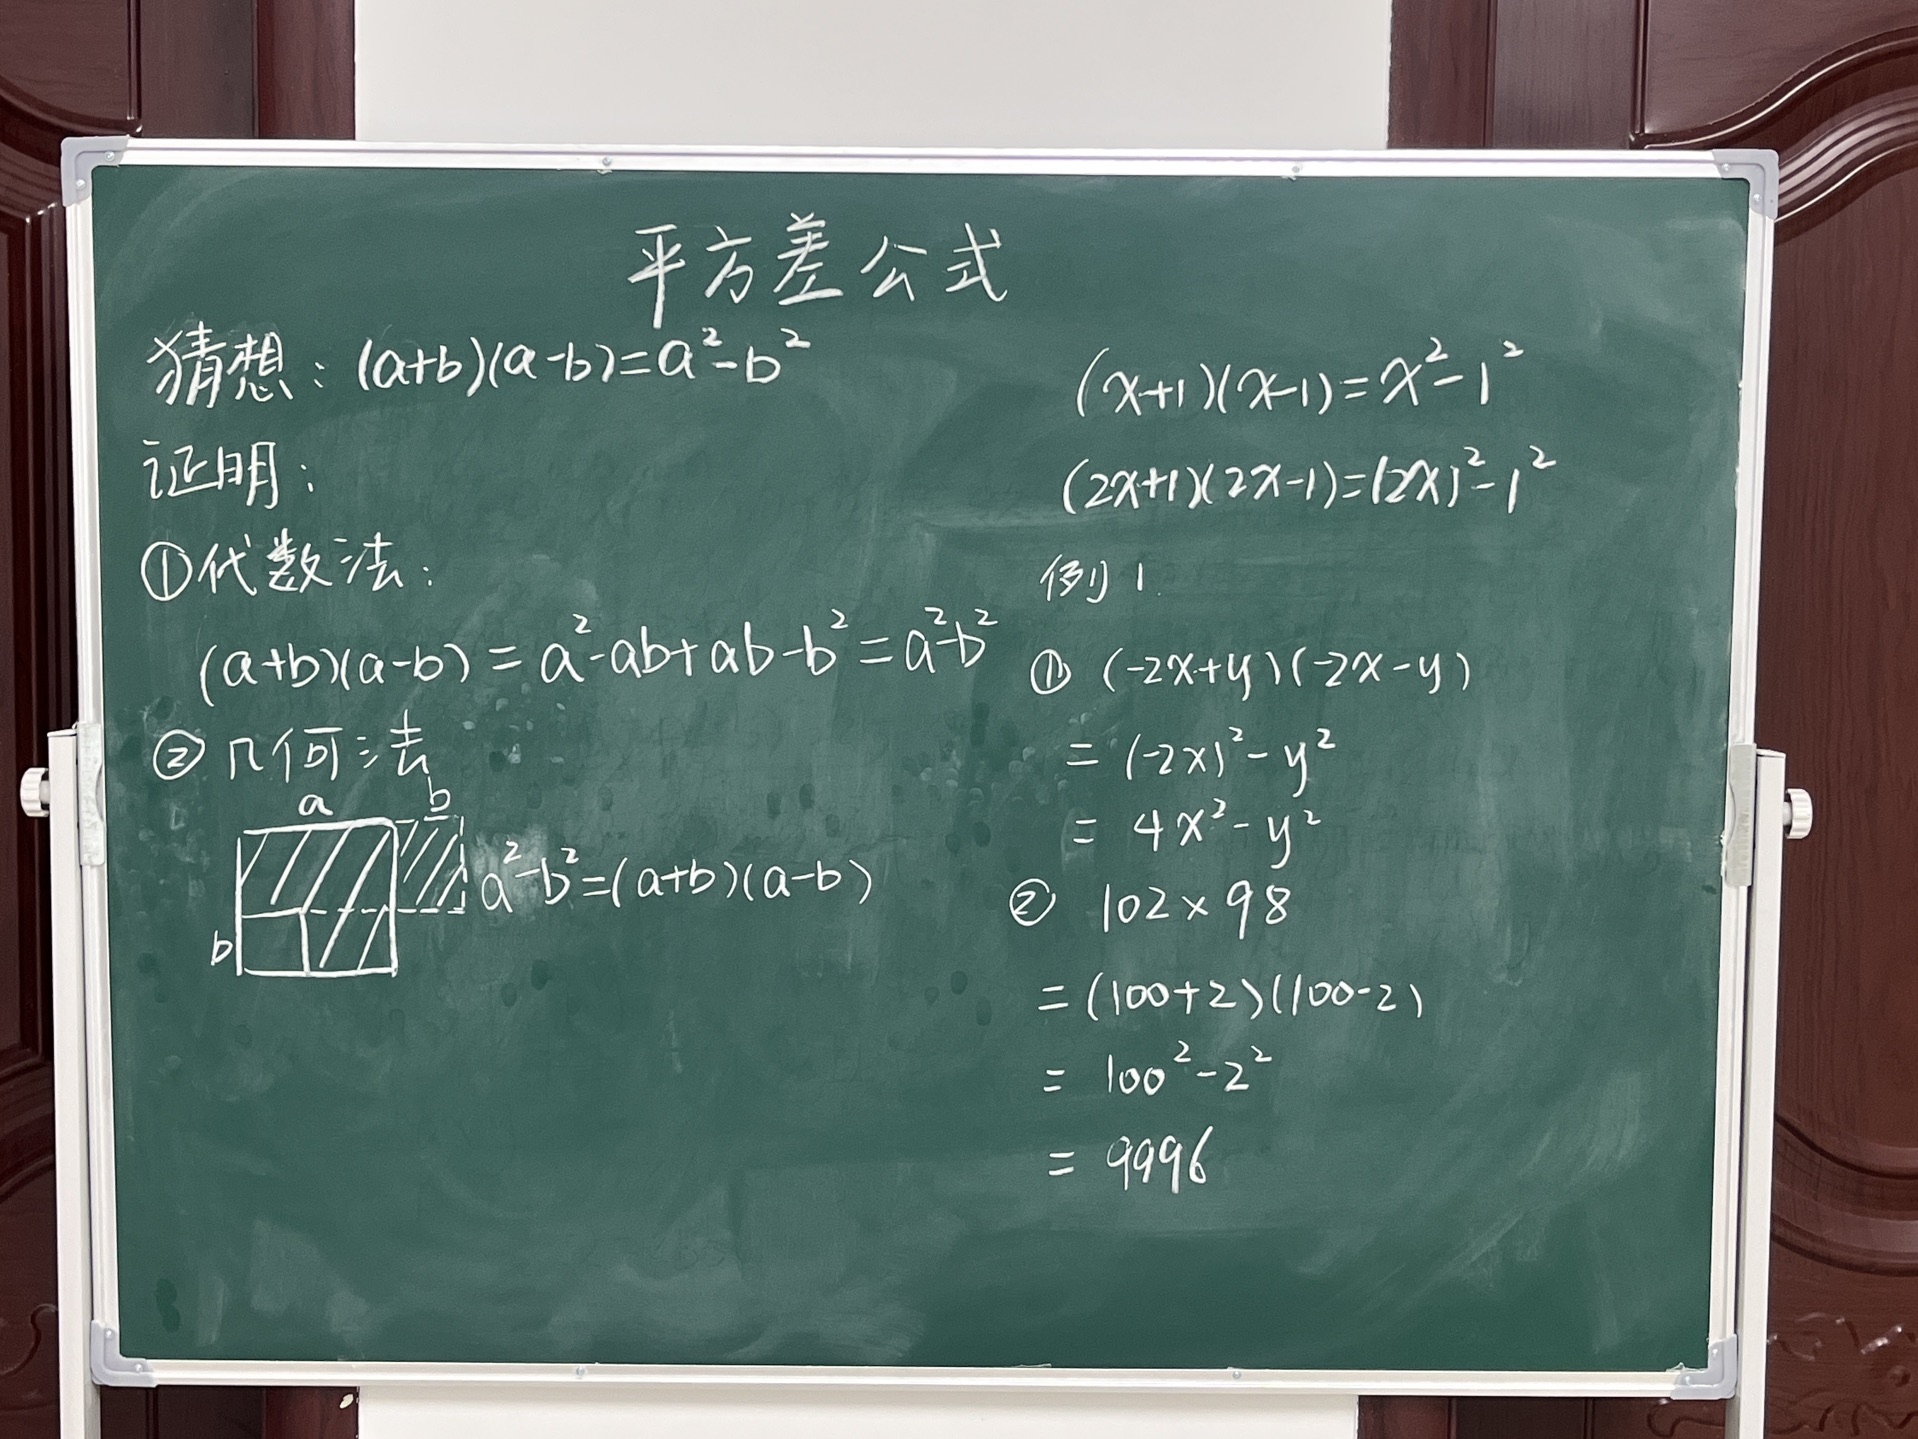 平方差公式
猜想：(a+b)(a-b)=a²-b²
证明：
①代数法：
(a+b)(a-b)=a²-ab+ab-b²=a²-b²
②几何法
a b
a²-b²=(a+b)(a-b)
b
(x+1)(x-1)=x²-1²
(2x+1)(2x-1)=(2x)²-1²
例1.
① (-2x+y)(-2x-y)
= (-2x)²-y²
= 4x²-y²
② 102×98
=(100+2)(100-2)
= 100²-2²
= 9996